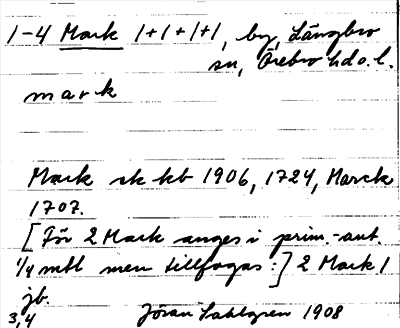 1-4 Mark 1+1+1+1, by, Längbro
sn, Örebro hd o. l.
mark
Mark sk kb 1906, 1724, Marck
1707.
[För 2 Mark anges i prim.-ant.
1/4 mtl men tillfogas:] 2 Mark 1
jb.
3,4 Jöran Sahlgren 1908